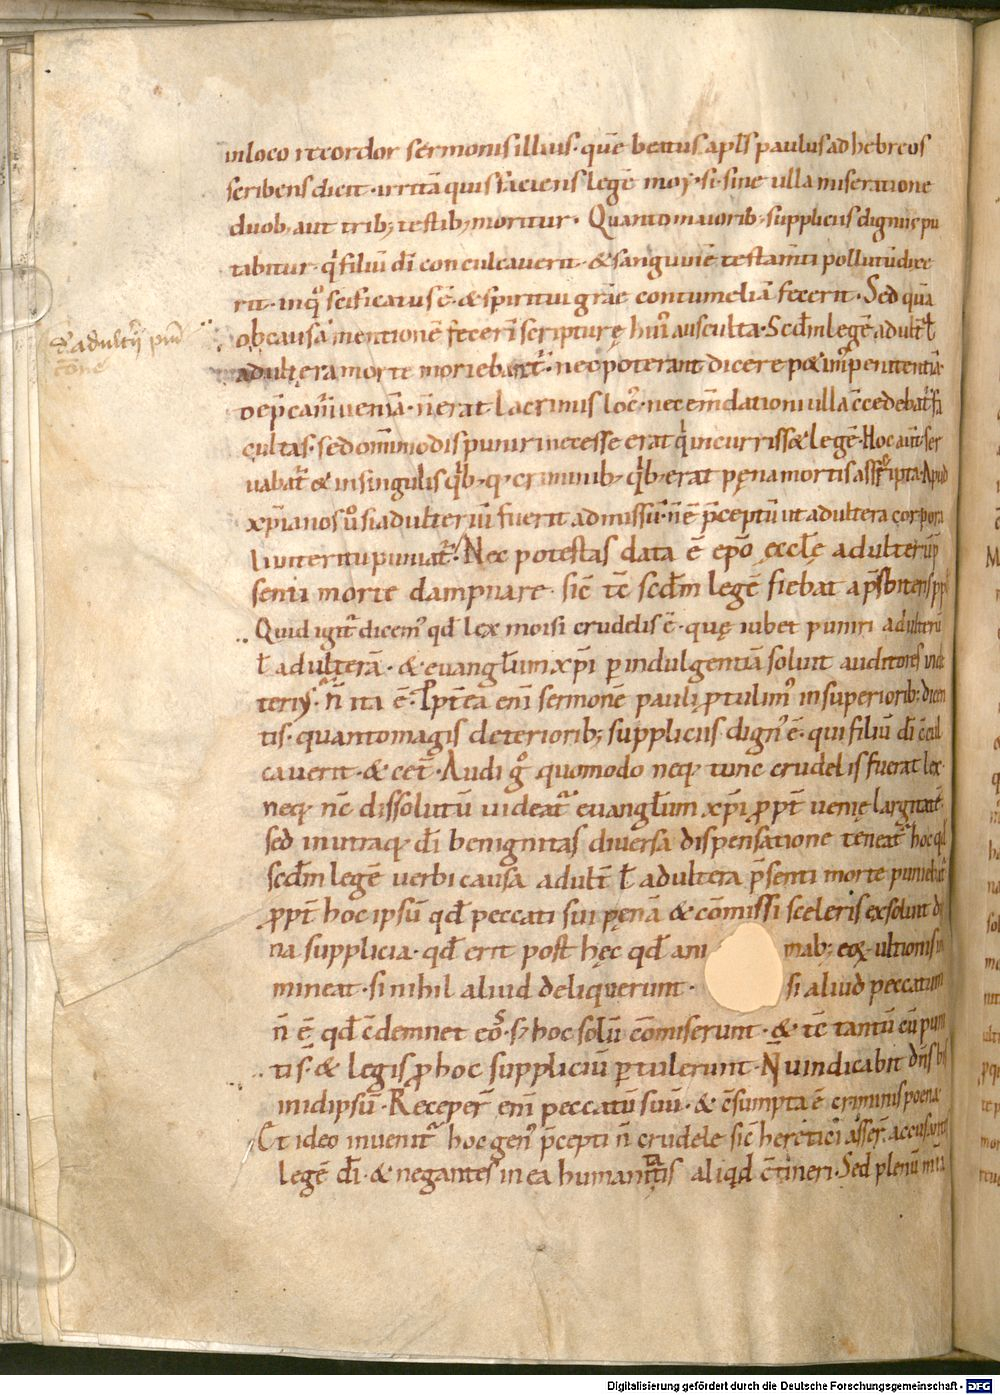 inloco recordor sermonis illius· quē beatus apłs paulus ad hebreos
scribens dicit· irritā quis faciens legē moẏ·si· sine ulla miseratione
duob; aut trib; testib; moritur· Quanto maiorib; suppliciis dignus pu
tabitur· q̇ filiū dī conculcauerit· & sanguinē testam̄ti pollutū dixe
rit· inqͦ sc̄ificatus ē· & spiritui gr̄ae contumeliā fecerit· Sed quā
ob causā mentionē fecerī scripturę hui᾽ ausculta· Scd̄m legē adult̄ ł
de adulterii puni
tione
adultera morte moriebant᷑· nec poterant dicere poenitentiā·
dep̄cam̄ ueniā· n̄ erat lacrimis loc᾽· nec em̄dationi ulla c̄cedebat᷑ fa
cultas· sed om̄imodis puniri necesse erat q̇ incurriss& legē· Hoc aut̄ ser
uabat᷑ & in singulis q̇b;q; criminib; q̇b; erat pęna mortis asscripta· Apud
xp̄ianos u͛o si adulteriū fuerit admissū· n̄ ē p̄ceptū ut adultera corpora
li interitu puniat᷑· Nec potestas data ē ep̄o ęccłę adulterū p̄
senti morte dampnare· sic̄ tc̄ scd̄m legē fiebat a p̄sbiteris ppłi
Quid igit᷑ dicem᾽ qd̄ lex moisi crudelis ē· quę iubet puniri adulterū
ł adulterā· & euangłium xp̄i p indulgentiā soluit auditores in de
teri᾽· n̄ ita ē· Ppt̄ea eni sermonē pauli ptulim᾽ in superiorib; dicen
tis· quanto magis deteriorib; suppliciis dign᾽ ē· qui filiū dī c̄cul
cauerit· & cet̄· Audi gͦ quomodo neq; tunc crudelis fuerat lex
neq; nc̄ dissolutū uideat᷑ euangłium xp̄i ppt̄ uenię largitatē
sed in utraq; dī benignitas diuersa dispensatione teneat᷑ hoc qd̄
scd̄m legē uerbi causa adult̄ ł adultera p̄senti morte puniebat᷑
ppt̄ hoc ipsū qd̄ peccati sui pęnā & cōmissi sceleris exsoluit dig
na supplicia· qd̄ erit post hęc qd̄ ani mab; eoꝝ ultionis in
mineat· si nihil aliud deliquerunt· si aliud peccatum
n̄ ē qd̄ c̄demnet eoˢ· s; hoc solū cōmiserunt· & tc̄ tantū cū puni
ti s̄· & legis p hoc suppliciū ptulerunt· N̄ uindicabit dn̄s bis
inidipsū· Receper̄ eni peccatū suū· & c̄sumpta ē criminis poena·
Et ideo inuenit᷑ hoc gen᾽ p̄cepti n̄ crudele sic̄ heretici asser̄ accusantes
legē dī· & negantes in ea humanitatis aliq̇d c̄tineri· Sed plenū mi̅a
Digitalisierung gefördert durch die Deutsche Forschungsgemeinschaft - DFG